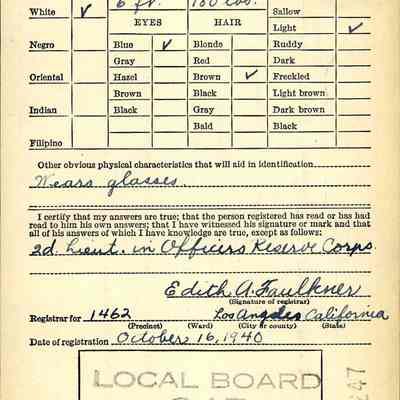 6 ft.
Sallow
White ✓
EYES HAIR
Light ✓
Negro Blue ✓ Blonde Ruddy
Gray Red Dark
Oriental Hazel Brown ✓ Freckled
Brown Black Light brown
Indian Black Gray Dark brown
Bald Black
Filipino
Other obvious physical characteristics that will aid in identification
Wears glasses.
I certify that my answers are true; that the person registered has read or has had
read to him his own answers; that I have witnessed his signature or mark and that
all of his answers of which I have knowledge are true, except as follows:
2d. Lieut. in Officers Reserve Corps.
Edith A. Faulkner
(Signature of registrar)
Registrar for 1462 Los Angeles California
(Precinct) (Ward) (City or county) (State)
Date of registration October 16, 1940
LOCAL BOARD
247